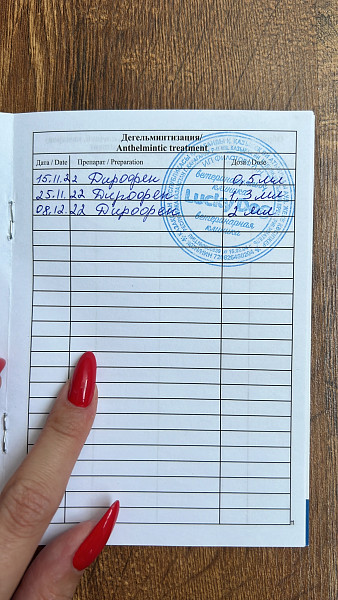 Дегельминтизация/
Anthelmintic treatment
Дата / Date Препарат / Preparation Доза / Dose
15.11.22 Дирофен 0,5 мл
25.11.22 Дирофен 1,3 мл
08.12.22 Дирофен 2 мл
Lucky
ветеринарная
клиника